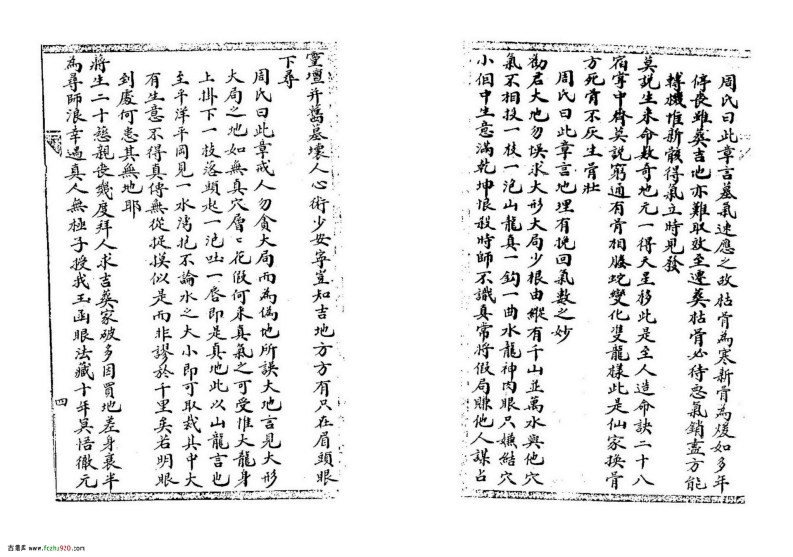 周氏曰此章言墓氣速應之政枯骨為寒新骨為煖如多年
停喪雖葬吉地亦難取效至遷葬枯骨必待惡氣銷盡方能
轉機惟新骸得氣立時見發
莫說生來命數奇地元一得天星移此是主人造命訣二十八
宿掌中齊莫說窮通有骨相騰蛇變化雙龍樣此是仙家換骨
方死骨不灰生骨壯
周氏曰此章言地理有挽回氣數之妙
勸君大地勿悞求大形大局少根由縱有千山並萬水與他穴
氣不相投一枝一泡山龍真一鈎一曲水龍神肉眼只嫌結穴
小個中生意滿乾坤恨殺時師不識真常將假局賺他人謀占
靈壇并舊墓壞人心術少安寧豈知吉地方方有只在眉頭眼
下尋
周氏曰此章戒人勿貪大局而為偽地所誤大地言見大形
大局之地如無真穴層〻花假何來真氣之可受惟大龍身
上掛下一枝落頭起一泡吐一唇即是真地此以山龍言也
至平洋平岡見一水灣抱不論水之大小即可取裁其中大
有生意不得真傳無從捉摸似是而非謬於千里矣若明眼
到處何患其無地耶
將生二十慈親喪幾度拜人求吉葬家破多因買地差身衰半
為尋師浪幸過真人無極子授我玉函眼法藏十年冥悟徹元
四
古籍库 www.fczhu920.com